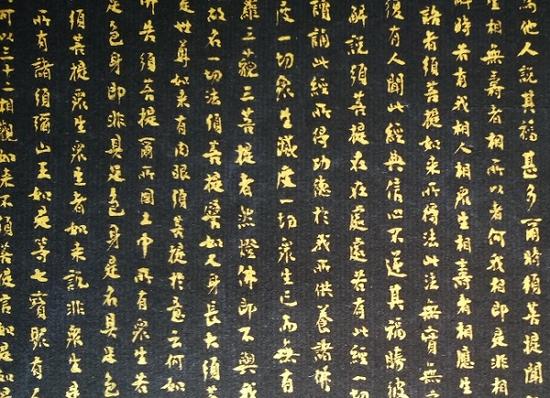 為他人說其福甚多爾時須菩提聞
生相無壽者相所以者何我相即是非相
時若有我相人相眾生相壽者相應生
語者須菩提如來所得法此法無實無
復有人聞此經典信心不逆其福勝彼
解說須菩提在在處處若有此經一切
讀誦此經所得功德於我所供養諸佛
度一切眾生滅度一切眾生已而無有
羅三藐三菩提者然燈佛即不與我
故名一切法須菩提譬如人身長大須菩
是世尊如來有肉眼須菩提於意云何如
佛告須菩提爾所國土中所有眾生若
足色身即非具足色身是名具足色
須菩提眾生眾生者如來說非眾生是
所有諸須彌山王如是等七寶聚有人
可以三十二相觀如來不須菩提言如是如